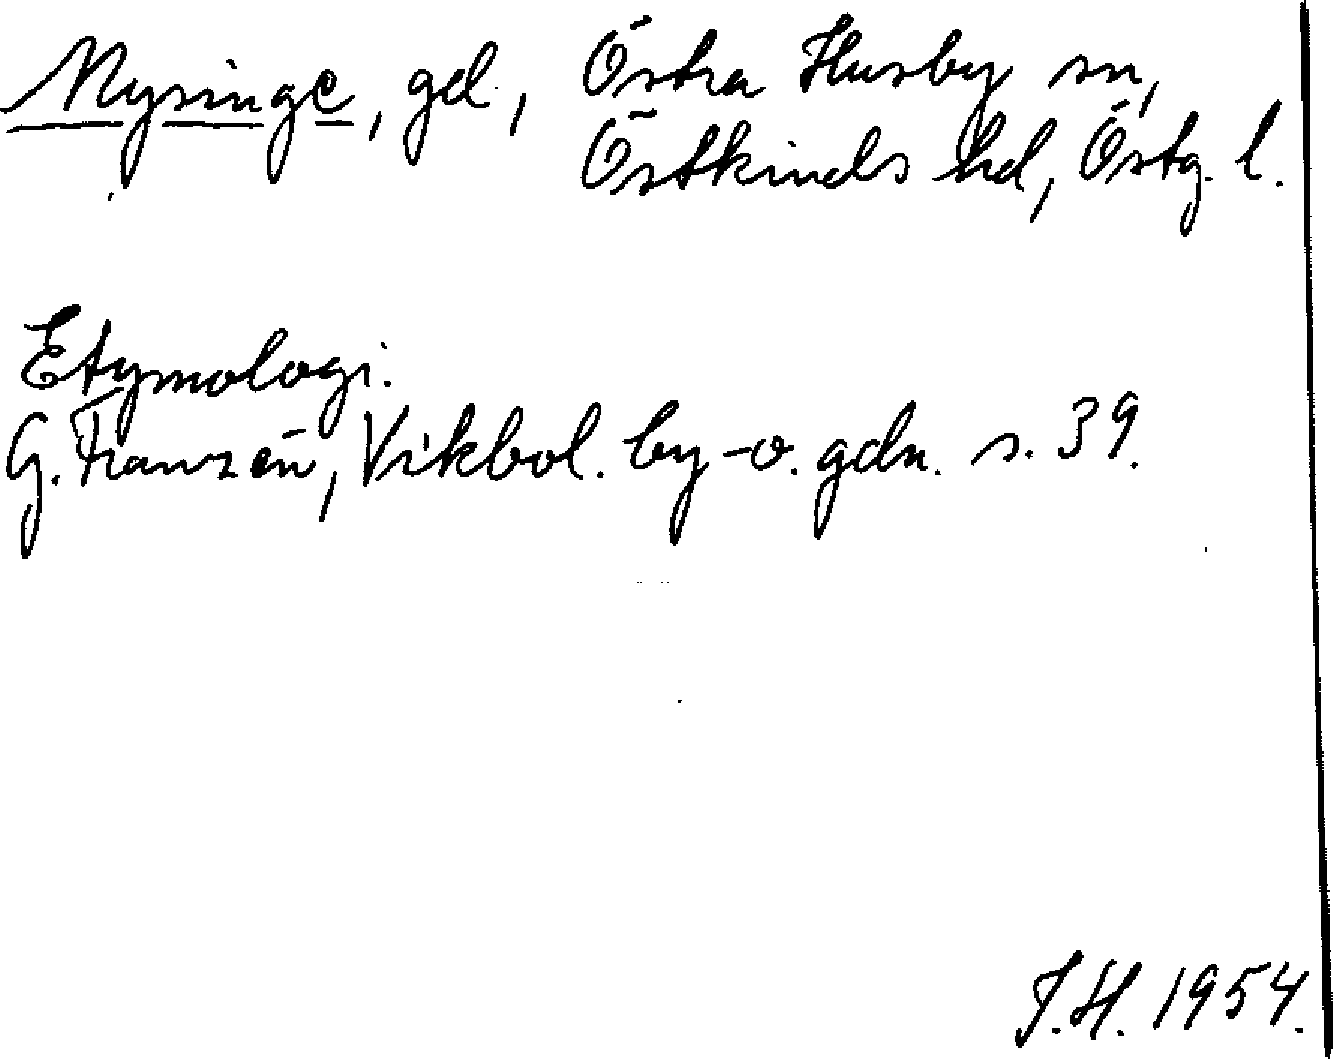 Nysinge, gd., Östra Husby sn,
Östkinds hd, Östg. l.
Etymologi.
G. Franzén, Vikbol. by- o. gdn. s. 39.
J.H. 1954.